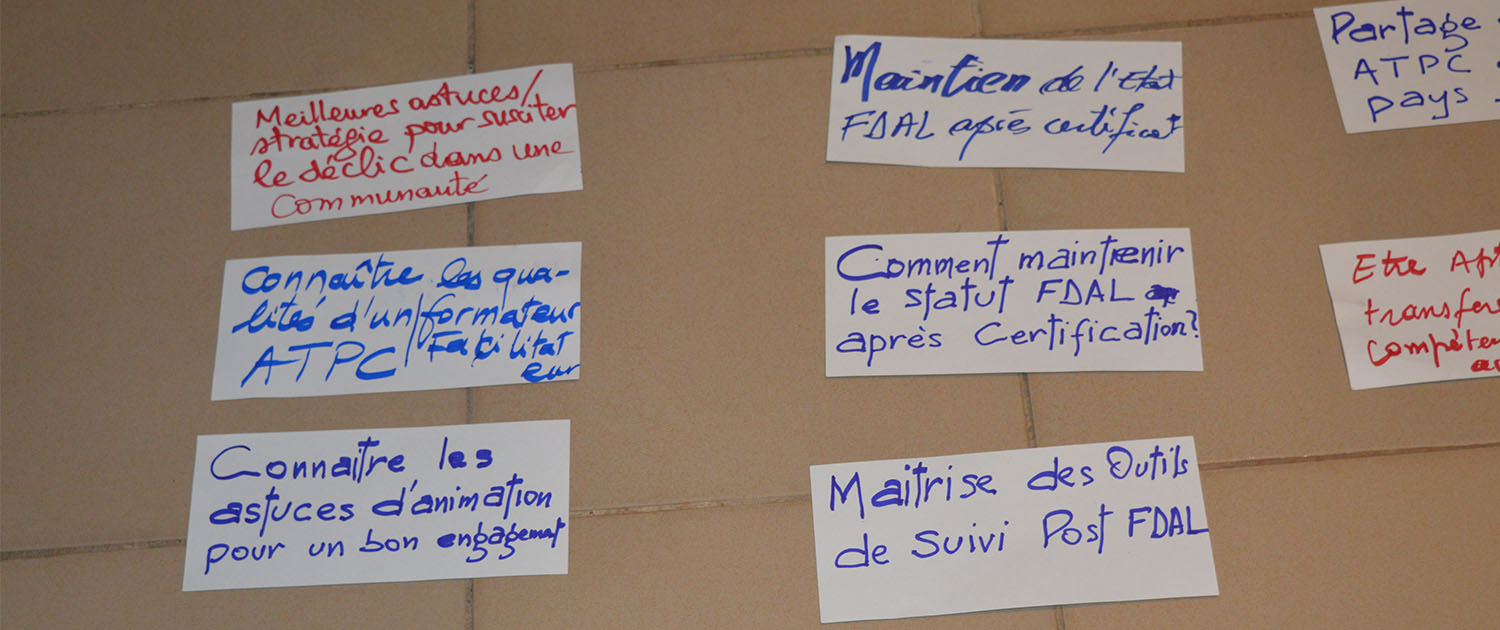 Meilleures astuces/
stratégie pour susciter
le déclic dans une
Communauté
Connaître les qua-
lités d'un formateur
ATPC / Facilitat
eur
Connaitre les
astuces d'animation
pour un bon engagemat
Maintien de l'Etat
FDAL après certificat
Comment maintrenir
le statut FDAL
après Certification?
Maitrise des Outils
de Suivi Post FDAL
Partage
ATPC
pays
Etre